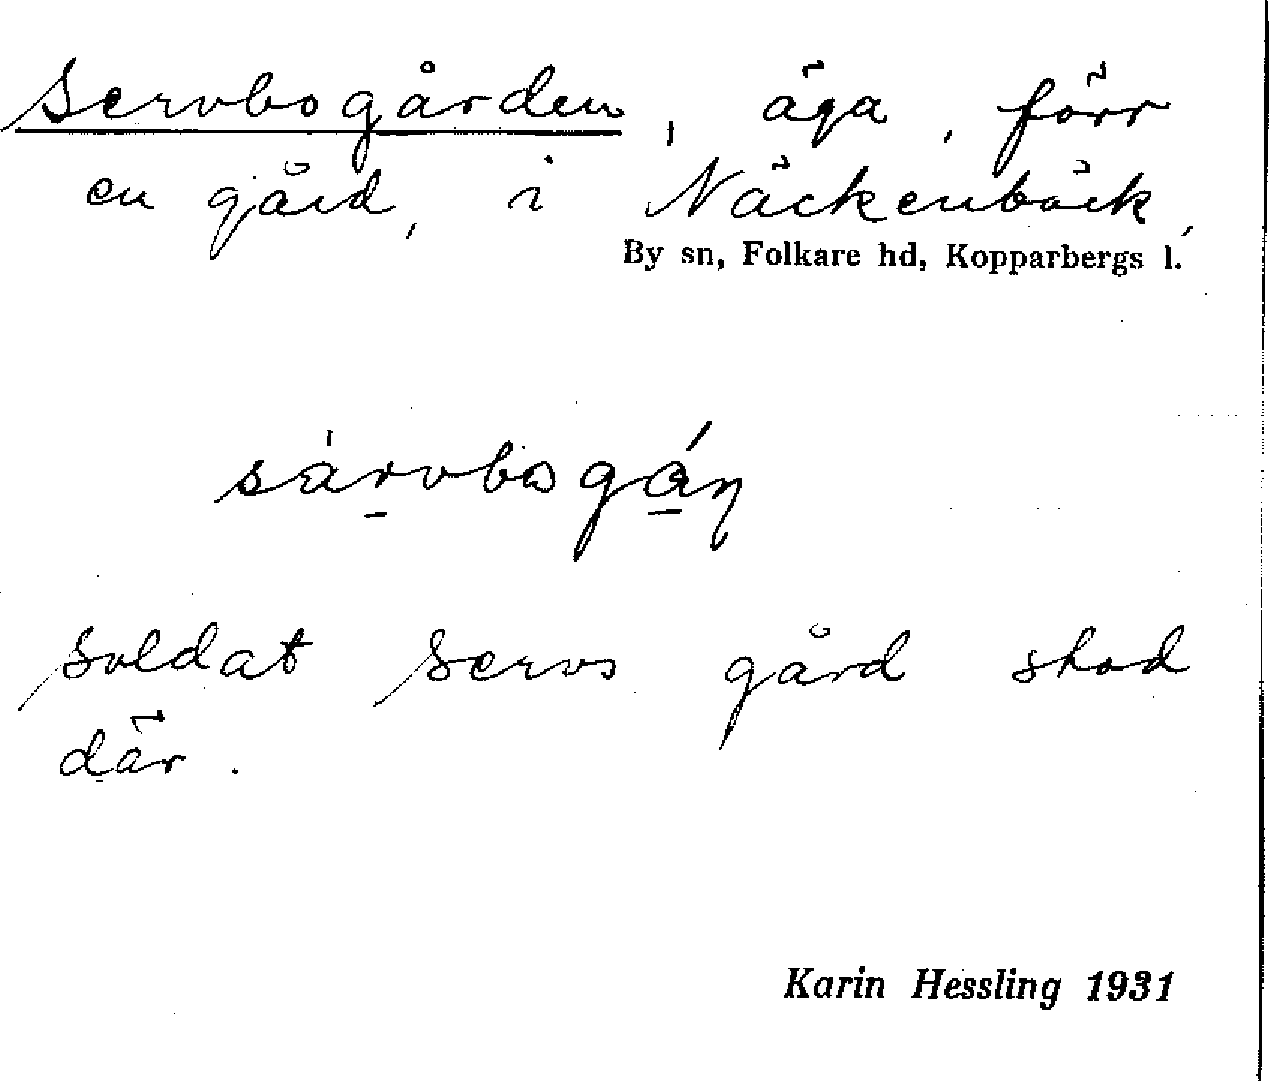 Servbogården, äga, förr
en gård, i Näckenbäck,
By sn, Folkare hd, Kopparbergs l.
sàrvbogán
Soldat Servs gård stod
där.
Karin Hessling 1931